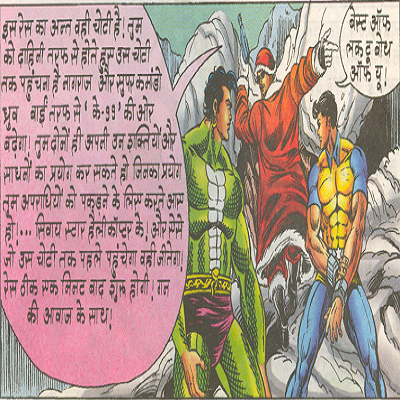 इस रेस का अन्त वही चोटी है। तुम
को दाहिनी तरफ से होते हुए उस चोटी
तक पहुंचना है नागराज और सुपर कमांडो
ध्रुव बाईं तरफ से 'के-99' की ओर
बढ़ेगा। तुम दोनों ही अपनी उन शक्तियों और
साधनों का प्रयोग कर सकते हो जिनका प्रयोग
तुम अपराधियों को पकड़ने के लिए करते आए
हो।... सिवाय स्टार हैलीकॉप्टर के, और ऐसे
जो उस चोटी तक पहले पहुंचेगा वही जीतेगा।
रेस ठीक एक मिनट बाद शुरू होगी, गन
की आवाज के साथ।
बेस्ट ऑफ
लक टू बोथ
ऑफ यू।